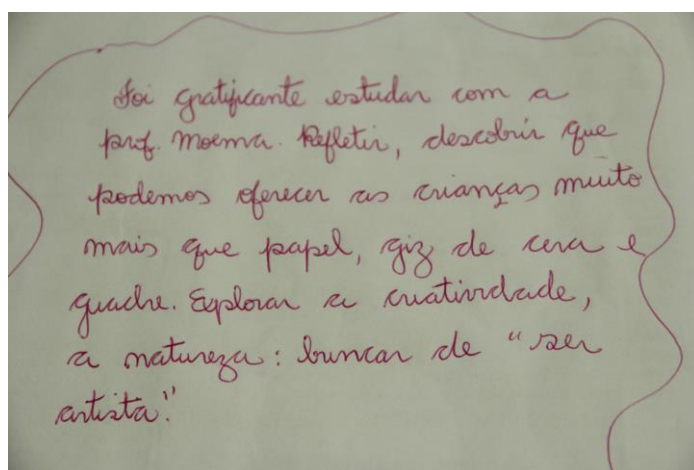 Foi gratificante estudar com a
prof. Moema. Refletir, descobrir que
podemos oferecer as crianças muito
mais que papel, giz de cera e
guache. Explorar a criatividade,
a natureza: brincar de "ser
artista."